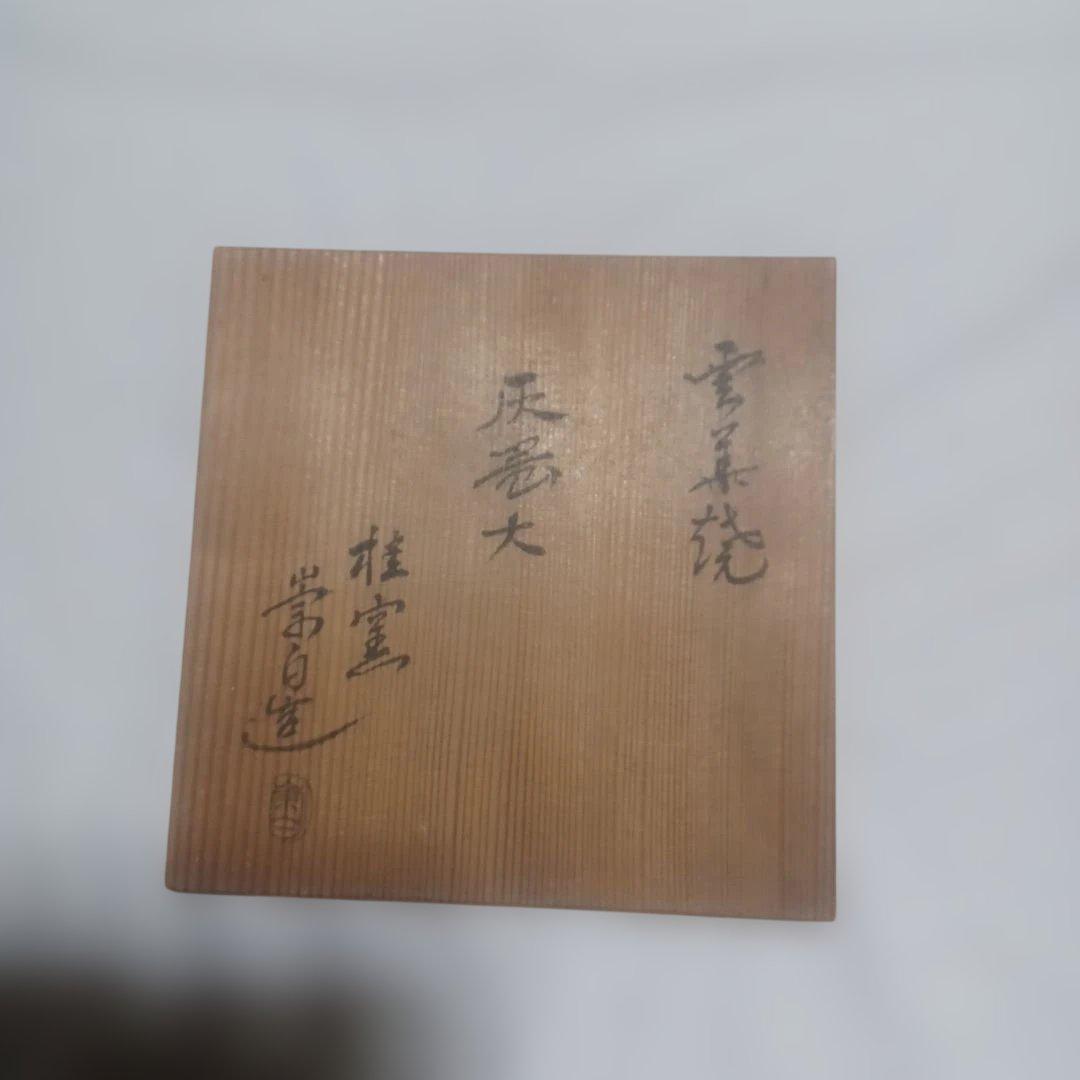 雲華焼
灰器大
桂窯
崇白造